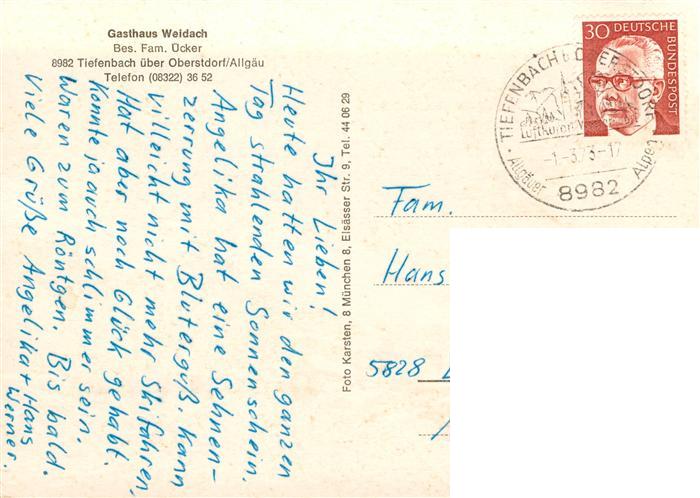 Gasthaus Weidach
Bes. Fam. Ücker
8982 Tiefenbach über Oberstdorf/Allgäu
Telefon (08322) 36 52
Ihr Lieben!
Heute hatten wir den ganzen
Tag strahlenden Sonnenschein.
Angelika hat eine Sehnen-
zerrung mit Bluterguß. Kann
villeicht nicht mehr Skifahren,
Hat aber noch Glück gehabt.
Konnte ja auch schlimmer sein.
Waren zum Röntgen. Bis bald.
Viele Grüße Angelika + Hans
Werner.
Foto Karsten, 8 München 8, Elsässer Str. 9, Tel. 44 06 29
30 DEUTSCHE
BUNDESPOST
TIEFENBACH OBERSTDORF
Luftkurort
-1.-3.73-17
Allgäuer Alpen
8982
Fam.
Hans
5828